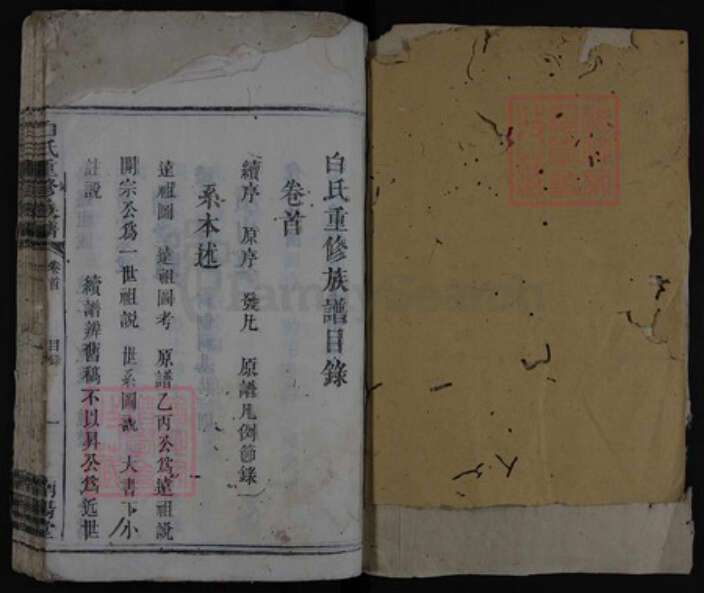 白氏重修族譜目錄
卷首
續序 原序 發凡 原譜凡例節錄
系本述
遠祖圖 遠祖圖考 原譜乙丙公為遠祖說
開宗公為一世祖說 世系圖說 大書下小
註說 續譜辨舊稿不以昇公為近世
白氏重修族譜 卷首 目錄 一
FamilySearch